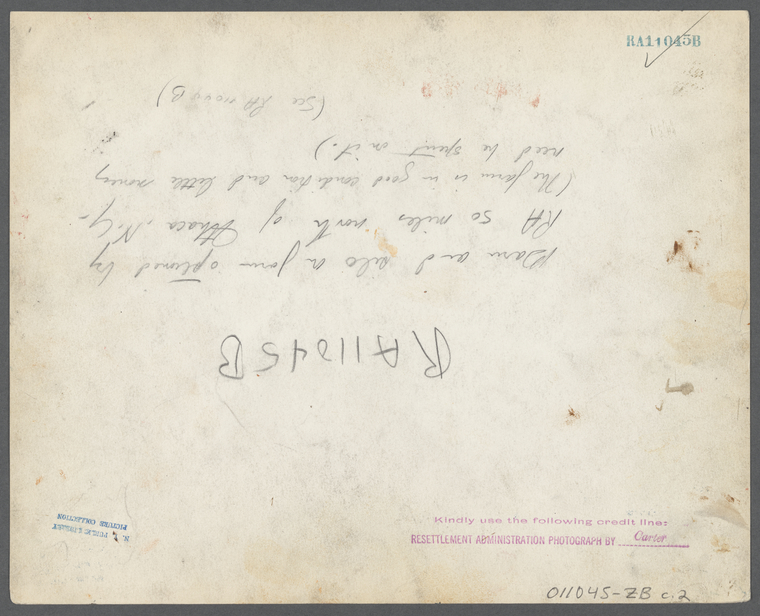 RA11045B
RA11045B
Barn and silo on farm optioned by
RA 50 miles north of Ithaca, N.Y.
(The farm is in good condition and little money
need be spent on it.)
(See RA 11044 B)
Kindly use the following credit line:
RESETTLEMENT ADMINISTRATION PHOTOGRAPH BY Carter
N. Y. PUBLIC LIBRARY
PICTURE COLLECTION
011045-ZB c.2